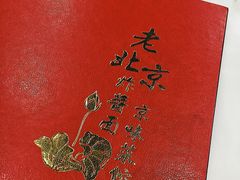 老北京
炸醬面
京味菜馆